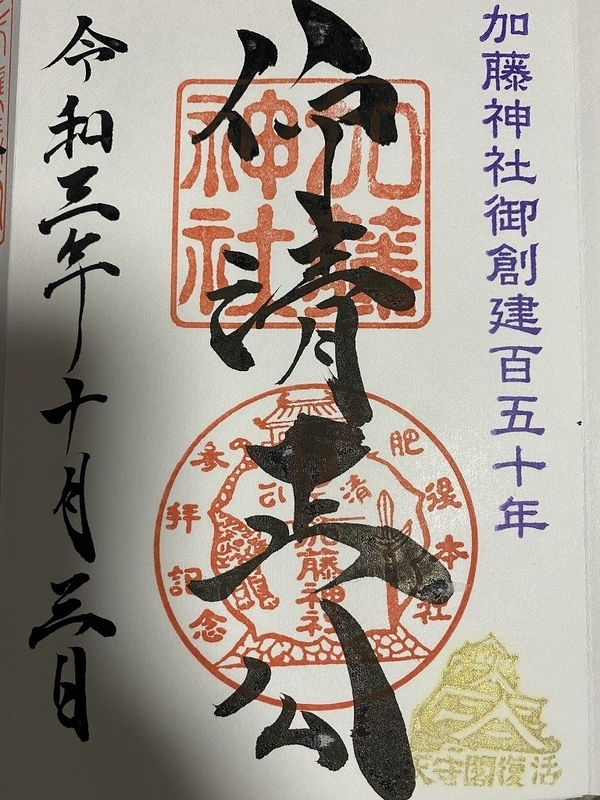 加藤神社御創建百五十年
仰清正公
加藤
神社
肥後本社
参拝記念
加藤神社
天守閣復活
令和三年十月三日